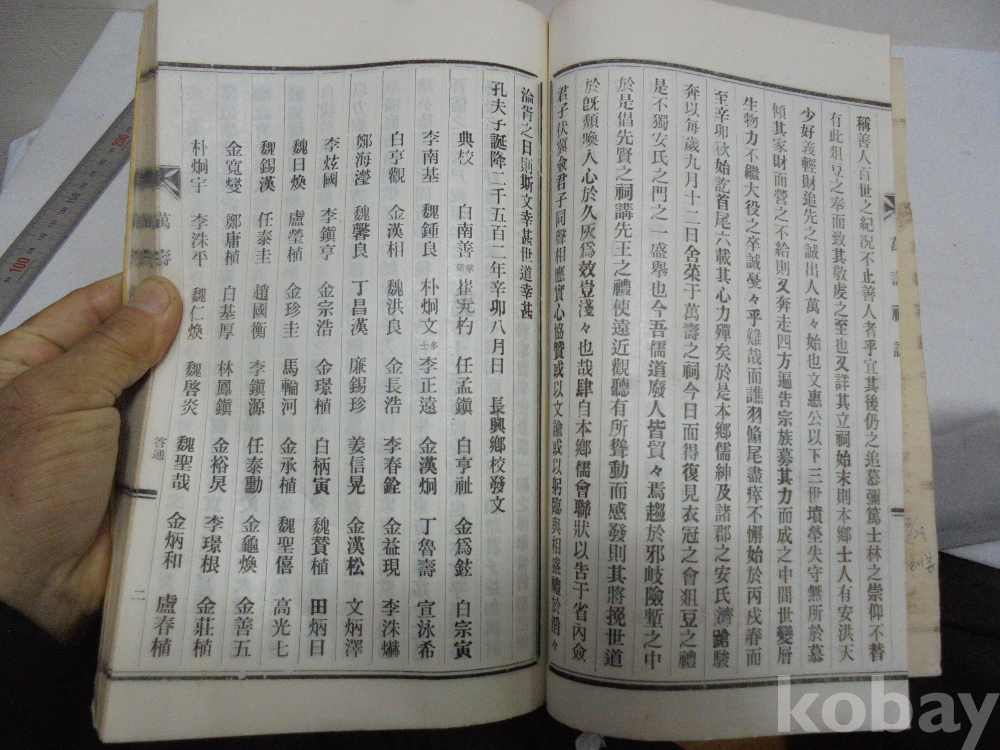 稱善人百世之紀況不止善人者乎宜其後仍之追慕彌篤士林之崇仰不替
有此俎豆之奉而致其敬處之至也又詳其立祠始末則本鄉士人有安洪天
少好義輕財追先之誠出人萬々始也文惠公以下三世墳塋失守無所於慕
傾其家財而營之不給則又奔走四方遍告宗族募其力而成之中間世變層
生物力不繼大役之卒誠憂々乎難哉而譙羽翛尾盡瘁不懈始於丙戌春而
至辛卯秋始訖首尾六載其心力殫矣於是本鄉儒紳及諸郡之安氏濟蹌駿
奔以每歲九月十二日舍菜于萬壽之祠今日而得復見衣冠之會俎豆之禮
是不獨安氏之門之一盛擧也今吾儒道廢人皆貿々焉趨於邪岐險塹之中
於是倡先賢之祠講先王之禮使遠近觀聽有所聳動而感發則其將挽世道
於旣頹喚人心於久灰爲效豈淺々也哉肆自本鄉儒會聯狀以告于省內僉
君子伏冀僉君子同聲相應實心協贊或以文諭或以躬臨與相盛禮於滔々
淪胥之日則斯文幸甚世道幸甚
孔夫子誕降二千五百二年辛卯八月日 長興鄉校發文
典校 白南善 崔光杓 任孟鎭 白亨祉 金爲鉉 白宗寅
李南基 魏鍾良 朴炯文 多士 李正遠 金漢炯 丁魯壽 宣泳希
白亨觀 金漢相 魏洪良 金長浩 李春銓 金益現 李洙爀
鄭海瀅 魏馨良 丁昌漢 廉錫珍 姜信晃 金漢松 文炳澤
李炫國 李鎭亨 金宗浩 金璟植 白柄寅 魏贊植 田炳日
魏日煥 盧瑩植 金珍圭 馬輪河 金承植 魏聖僖 高光七
魏錫漢 任泰圭 趙國衡 李鎭源 任泰勳 金龜煥 金善五
金寬燮 鄭庸植 白基厚 林鳳鎭 金裕炅 李璟根 金莊植
朴炯宇 李洙平 魏仁煥 魏啓炎 魏聖哉 金炳和 盧春植
萬壽
答通
二
kobay